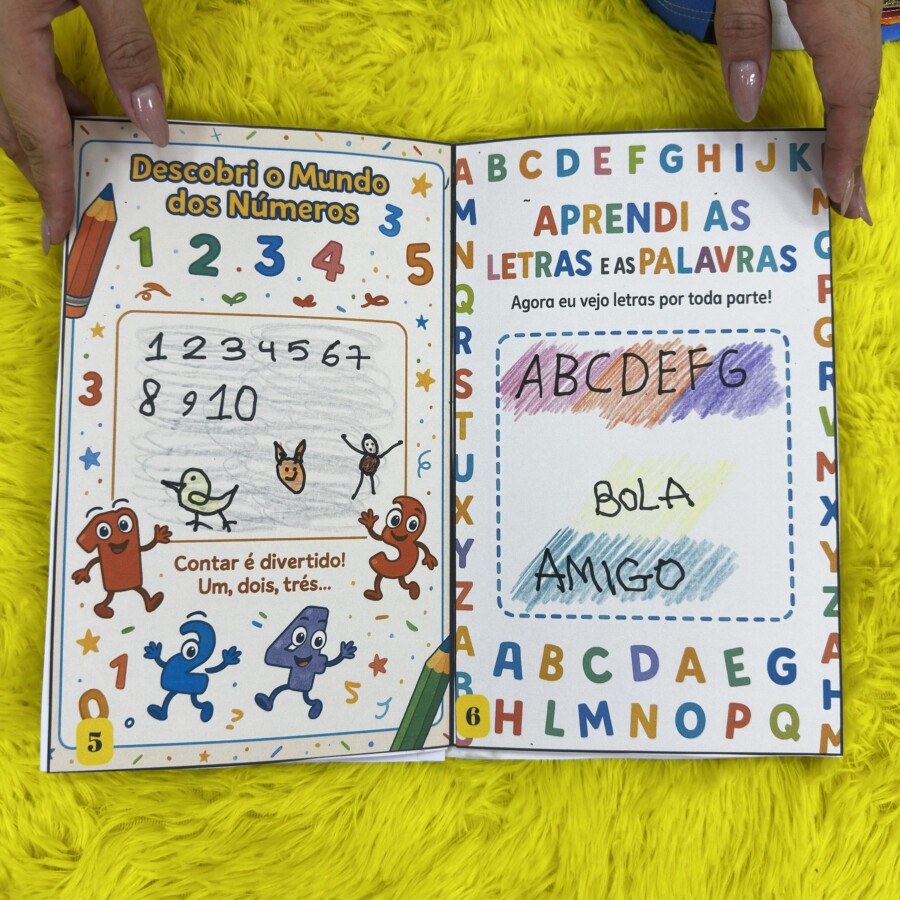 Descobri o Mundo
dos Números
1 2 3 4 5
3
1 2 3 4 5 6 7
8 9 10
3
Contar é divertido!
Um, dois, trés...
1
2
3
4
1
0
2
5
5
A B C D E F G H I J K
APRENDI ÁS
LETRAS E AS PALAVRAS
Agora eu vejo letras por toda parte!
ABCDEFG
BOLA
AMIGO
M
N
Q
R
S
T
U
X
Y
Z
A
B
Q
P
Q
R
V
M
X
Y
Z
A
H
M
A B C D A E G
H L M N O P Q
6